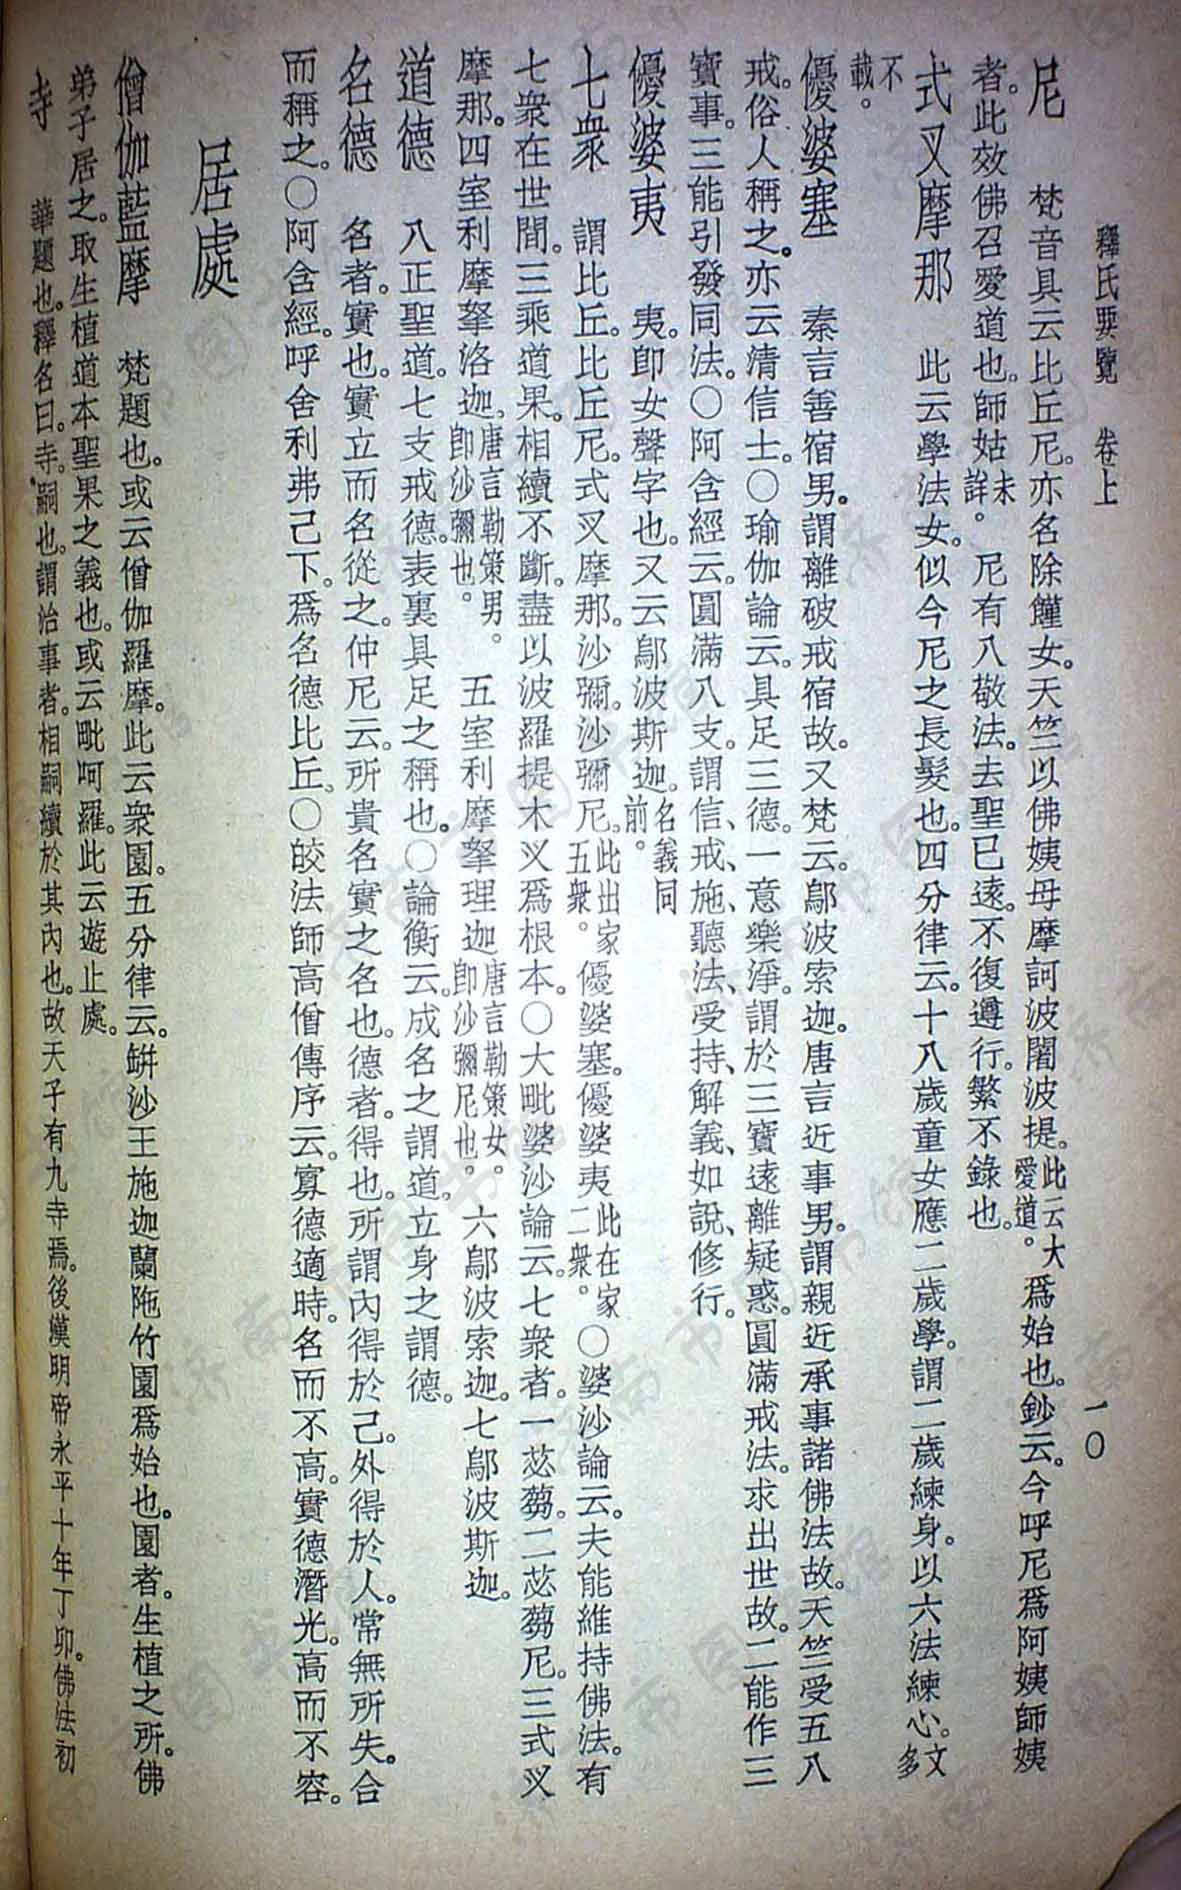 釋氏要覽　卷上　一〇
尼　梵音具云比丘尼。亦名除饉女。天竺以佛姨母摩訶波闍波提。此云大愛道。爲始也。鈔云。今呼尼爲阿姨師姨
者。此效佛召愛道也。師姑未詳。尼有八敬法。去聖已遠。不復遵行。繁不錄也。
式叉摩那　此云學法女。似今尼之長髮也。四分律云。十八歲童女應二歲學。謂二歲練身。以六法練心。文多
不載。
優婆塞　秦言善宿男。謂離破戒宿故。又梵云。鄔波索迦。唐言近事男。謂親近承事諸佛法故。天竺受五八
戒。俗人稱之。亦云清信士。〇瑜伽論云。具足三德。一意樂淨。謂於三寶遠離疑惑。圓滿戒法。求出世故。二能作三
寶事。三能引發同法。〇阿含經云。圓滿八支。謂信、戒、施、聽法、受持、解義、如說、修行。
優婆夷　夷。卽女聲字也。又云鄔波斯迦。名義同前。
七衆　謂比丘。比丘尼。式叉摩那。沙彌。沙彌尼。此出家五衆。優婆塞。優婆夷此在家二衆。〇婆沙論云。夫能維持佛法。有
七衆在世間。三乘道果。相續不斷。盡以波羅提木叉爲根本。〇大毗婆沙論云。七衆者。一苾蒭。二苾蒭尼。三式叉
摩那。四室利摩拏洛迦。唐言勒策男。卽沙彌也。五室利摩拏理迦唐言勒策女。卽沙彌尼也。六鄔波索迦。七鄔波斯迦。
道德　八正聖道。七支戒德。表裏具足之稱也。〇論衡云。成名之謂道。立身之謂德。
名德　名者。實也。實立而名從之。仲尼云。所貴名實之名也。德者。得也。所謂內得於己。外得於人。常無所失。合
而稱之。〇阿含經。呼舍利弗己下。爲名德比丘。〇皎法師高僧傳序云。寡德適時。名而不高。實德潛光。高而不容。
居處
僧伽藍摩　梵題也。或云僧伽羅摩。此云衆園。五分律云。缾沙王施迦蘭陁竹園爲始也。園者。生植之所。佛
弟子居之。取生植道本聖果之義也。或云毗呵羅。此云遊止處。
寺　華題也。釋名曰。寺。嗣也。謂治事者。相嗣續於其內也。故天子有九寺焉。後漢明帝永平十年丁卯。佛法初